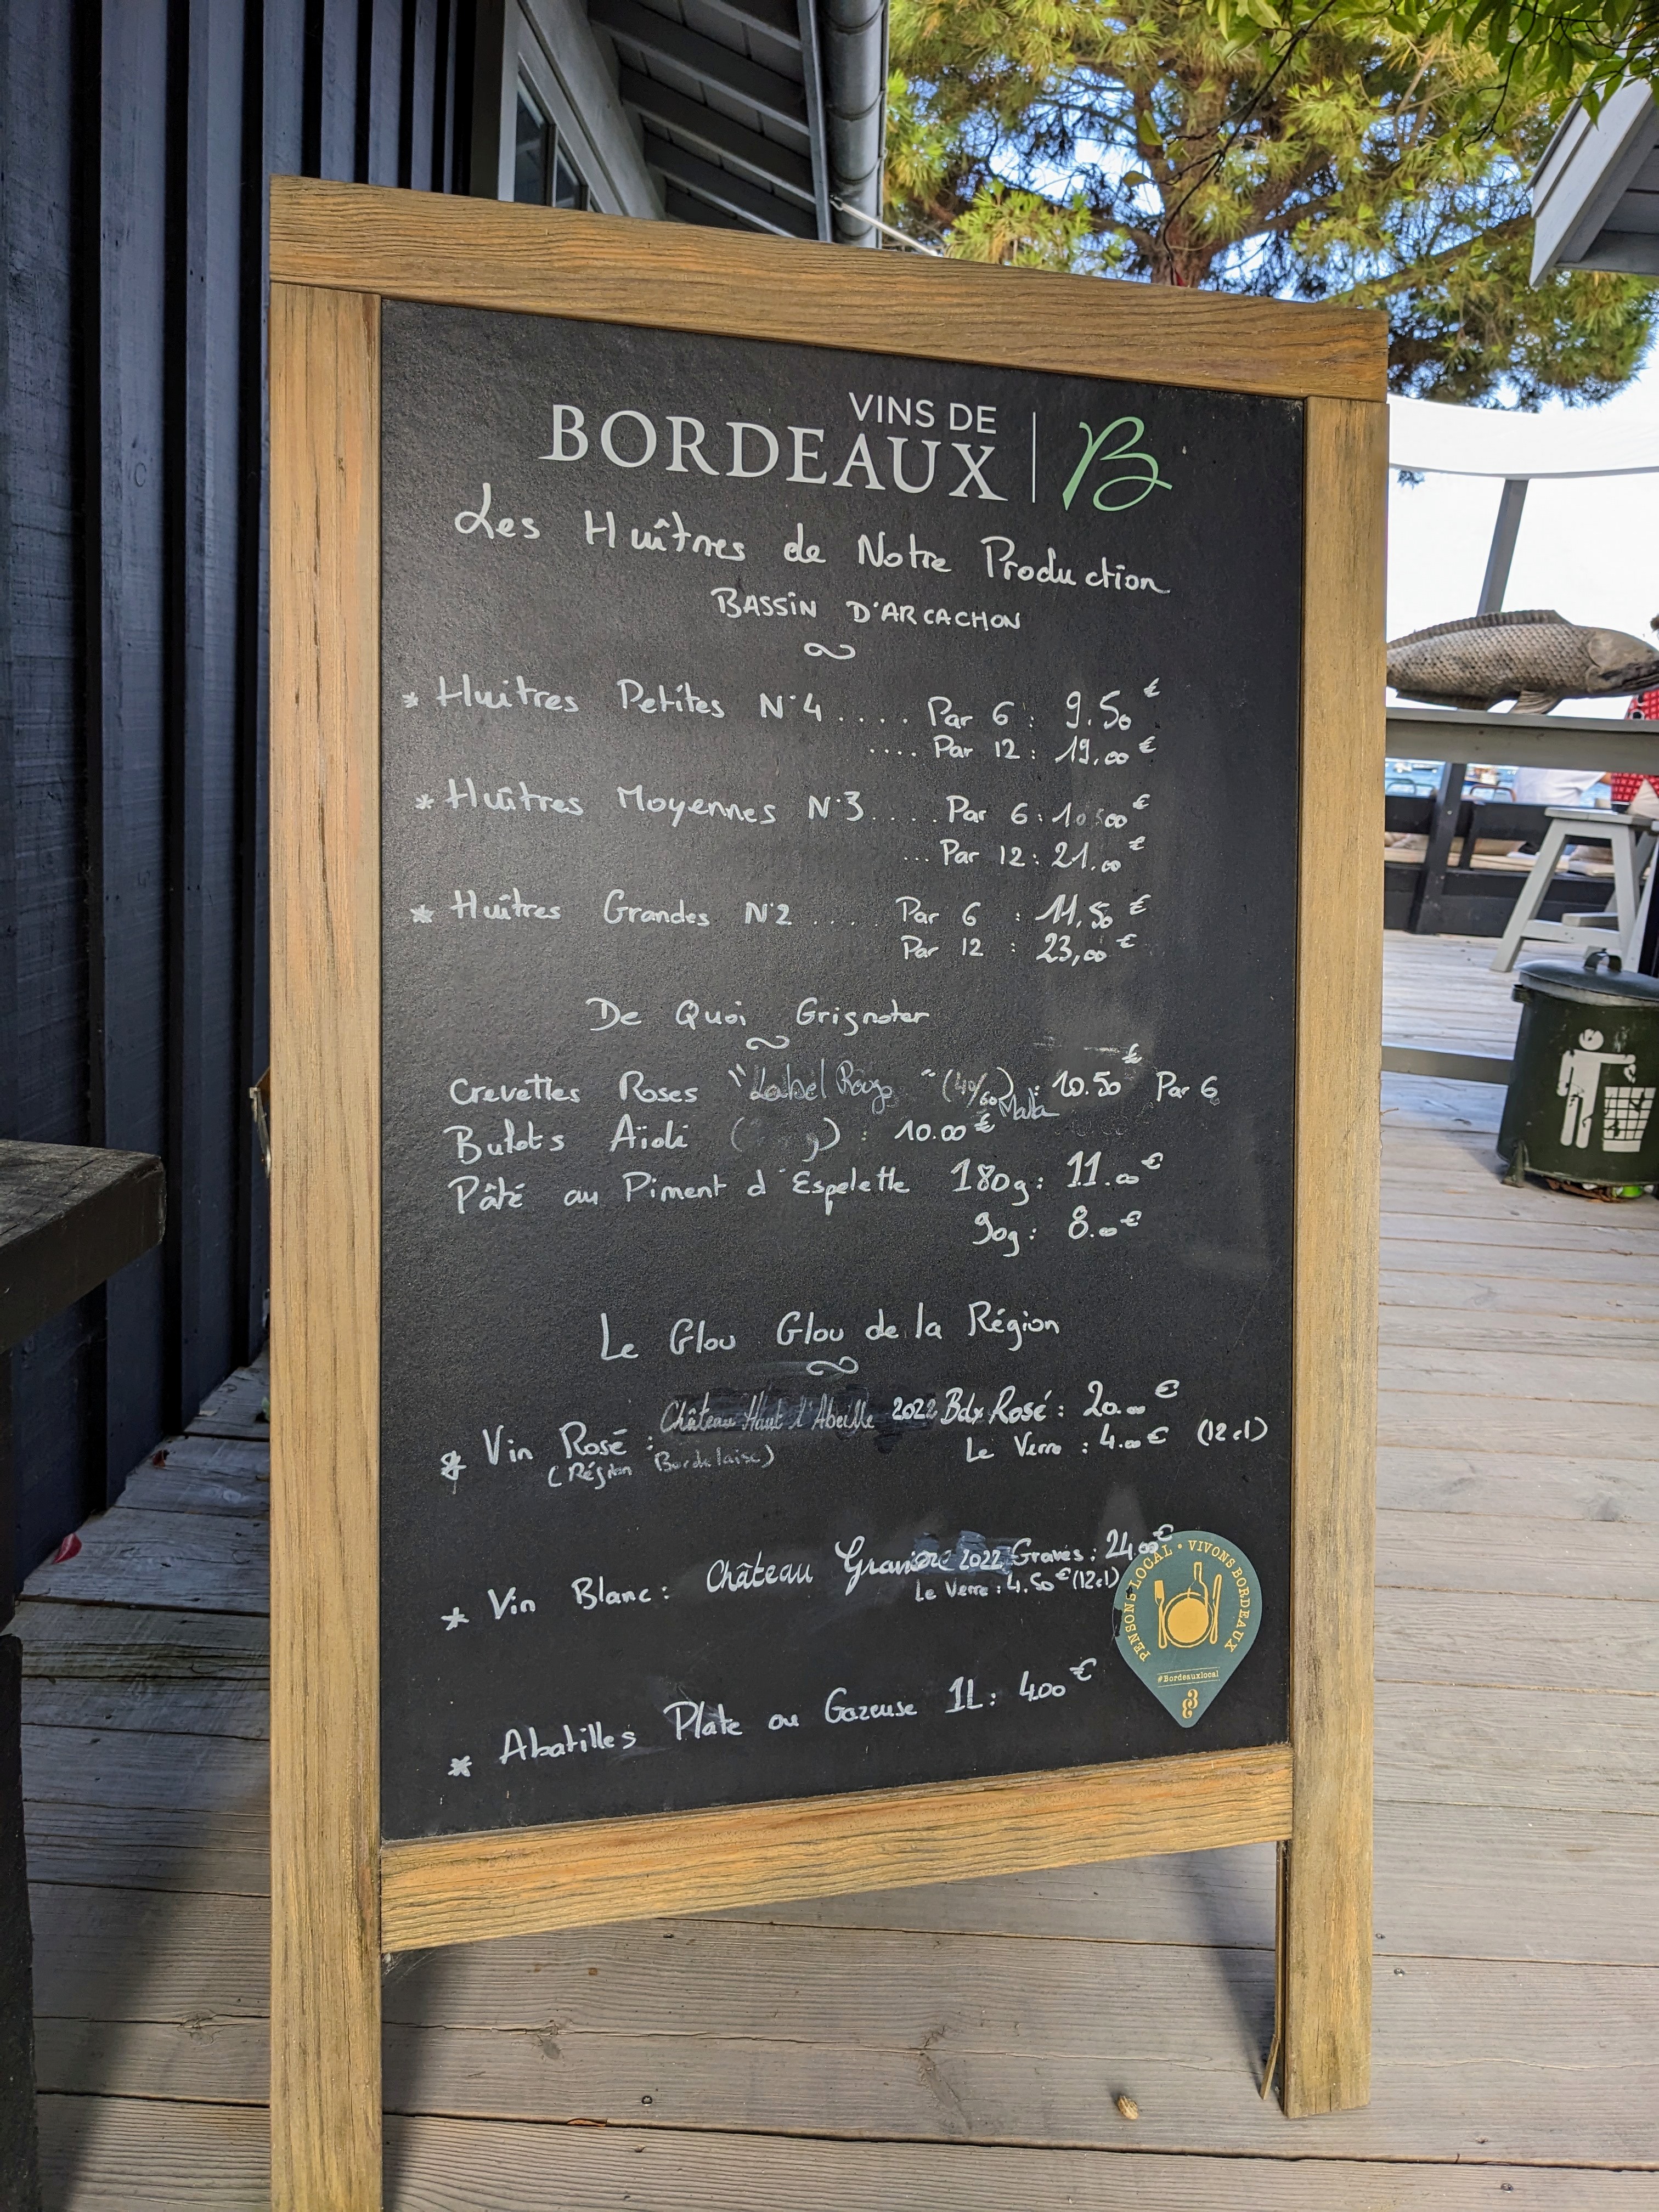 VINS DE
BORDEAUX | B
Les Huîtres de Notre Production
BASSIN D'ARCACHON
* Huitres Petites N°4 .... Par 6 : 9.50€
.... Par 12 : 19,00€
* Huîtres Moyennes N°3 .... Par 6 : 10,500€
... Par 12 : 21.00€
* Huîtres Grandes N°2 .... Par 6 : 11,50€
Par 12 : 23,00€
De Quoi Grignoter
Crevettes Roses "Label Rouge" (40/60) : 10.50€ Par 6
Mada
Bulots Aïoli ( g) : 10.00€
Pâté au Piment d'Espelette 180g : 11.00€
90g : 8.00€
Le Glou Glou de la Région
* Vin Rosé : Château Haut l'Abeille 2022 Bdx Rosé : 20.00€
(Région Bordelaise) Le Verre : 4.00€ (12cl)
* Vin Blanc : Château 2022 Graves : 24.00€
Le Verre : 4.50€ (12cl)
* Abatilles Plate ou Gazeuse 1L : 4.00€
PENSONS LOCAL • VIVONS BORDEAUX
#Bordeauxlocal